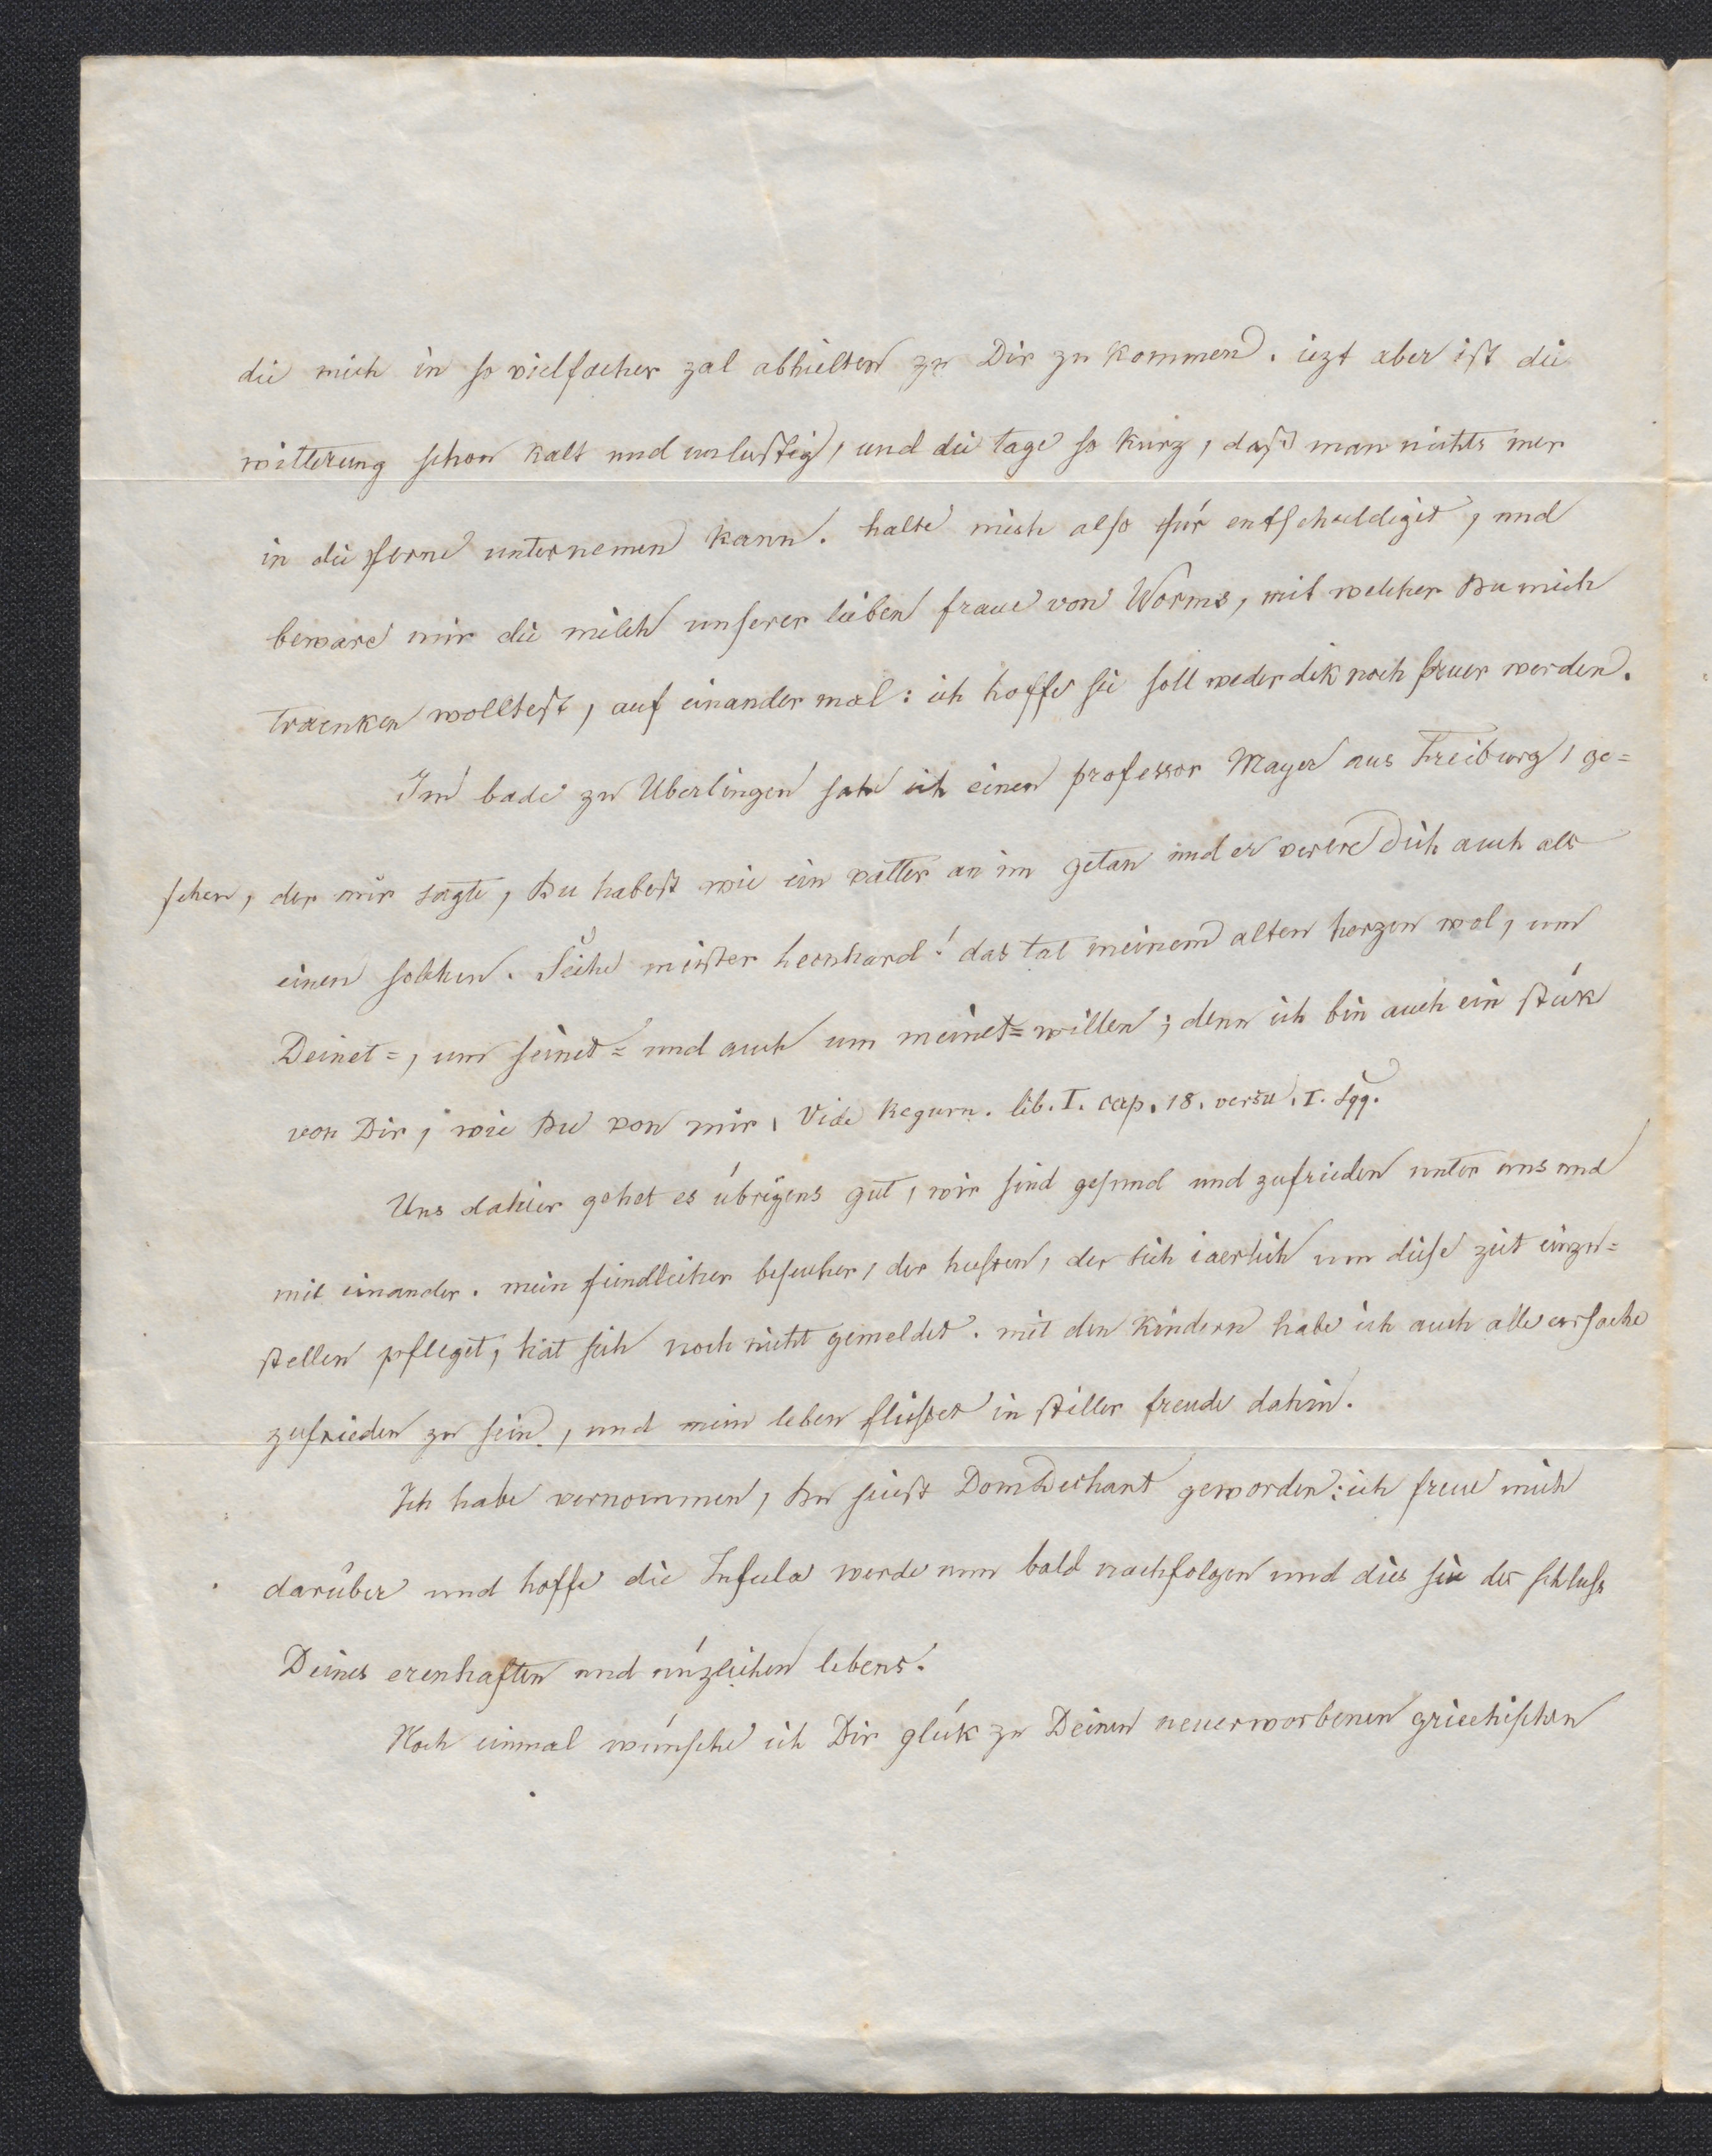 die mich in so vielfacher zal abhielten zu Dir zu kommen. iezt aber ist die
witterung schon kalt und unlustig, und die tage so kurz, daß man nichts mer
in die ferne unternemen kann. halte mich also für entschuldiget, und
beware mir die milch unserer lieben fraue von Worms, mit welcher Du mich
traenken wolltest, auf einander mal: ich hoffe sie soll weder dik noch sauer werden.
Im bade zu Uberlingen habe ich einen professor Mayer aus Freiburg, ge=
sehen, der mir sagte, Du habest wie ein vatter an im getan und er verere Dich auch als
einen solchen. Siehe meister Leonhard! das tat meinem alten herzen wol, um
Deinet=, um seinet= und auch um meinet=willen; denn ich bin auch ein stük
von Dir, wie Du von mir. Vide Regum. lib. I. cap. 18. versu. I. sqq.
Uns dahier gehet es übrigens gut, wir sind gesund und zufrieden unter uns und
mit einander. mein feindlicher besucher, der husten, der sich iaerlich um diese zeit einzu=
stellen pfleget, hat sich noch nicht gemeldet. mit den kindern habe ich auch alle ursache
zufrieden zu sein, und mein leben fliesset in stiller freude dahin.
Ich habe vernommen, Du seiest DomDechant geworden: ich freue mich
darüber und hoffe die Infula werde nun bald nachfolgen und dies sei der schluss
Deines erenhaften und nüzlichen lebens.
Noch einmal wünsche ich Dir glük zu Deinen neuerworbenen griechischen